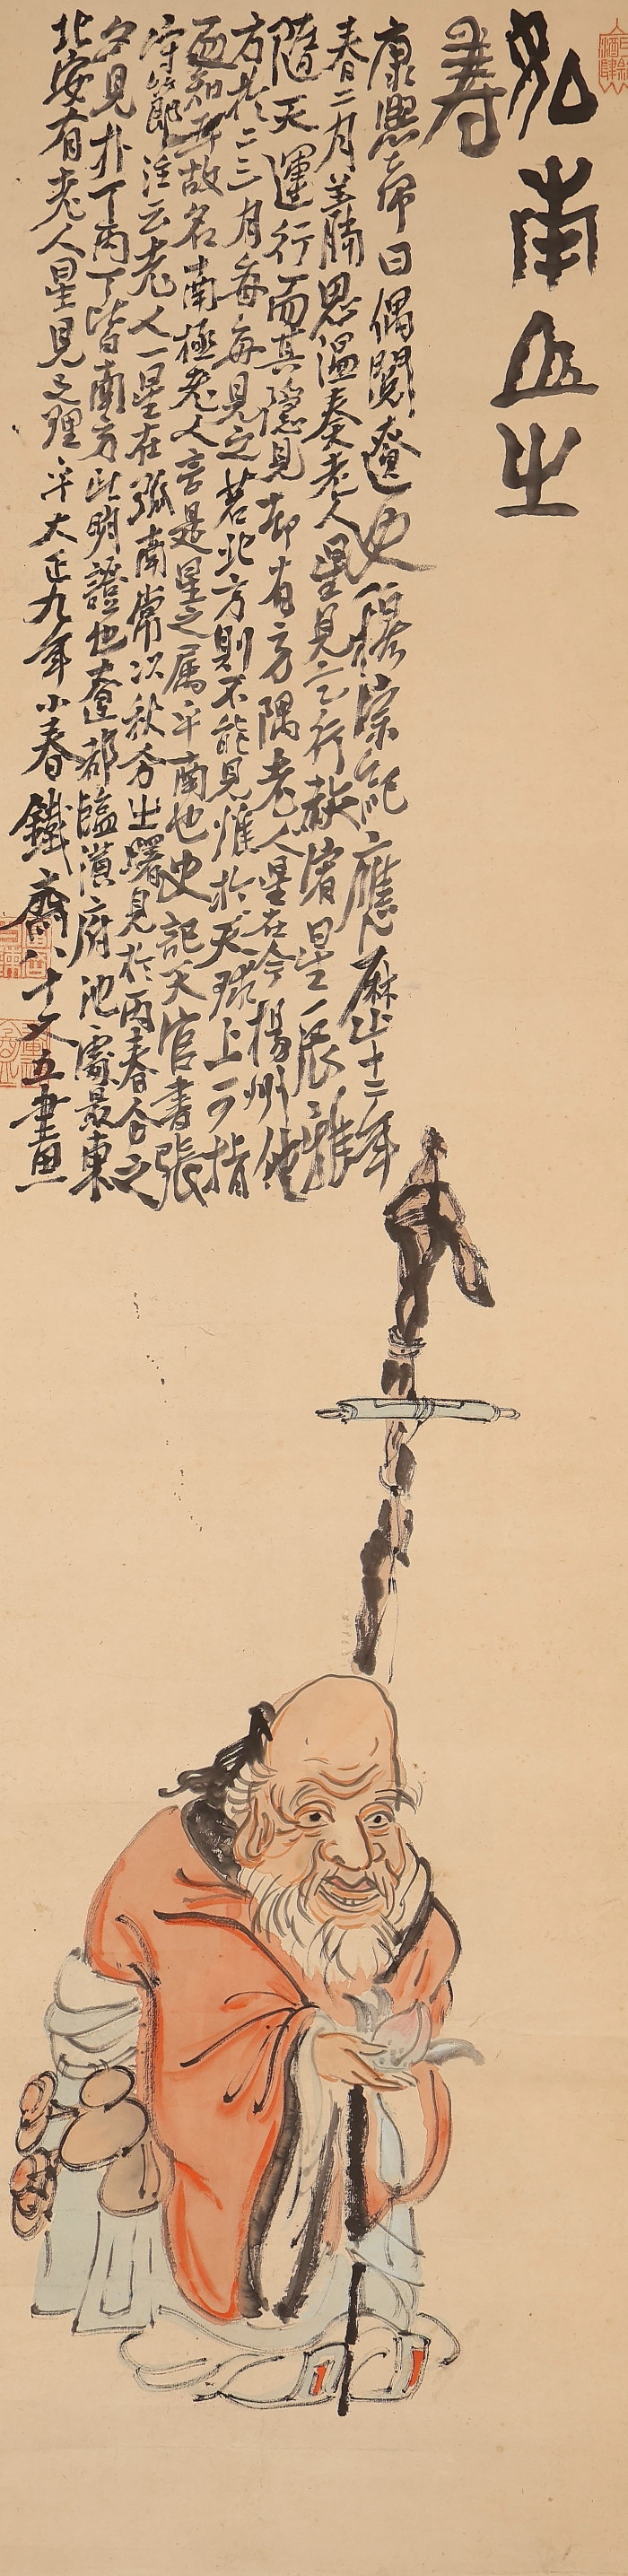 如南山之
壽
康熙帝曰偶閱遼史穆宗紀應曆十二年
春二月蕭思溫奏老人星見乞行赦宥星辰雖
隨天運行而其隱見却有方隅老人星在今揚州他
方於二三月每每見之若北方則不能見惟於天球上可指
而知耳故名南極老人言是星之属乎南也史記天官書張
守節注云老人一星在弧南常以秋分出曙見於丙春分之
夕見於丁丙丁皆南方此明證也遼都臨潢府地處最東
北安有老人星見之理乎大正九年小春鐵齋八十又五畫